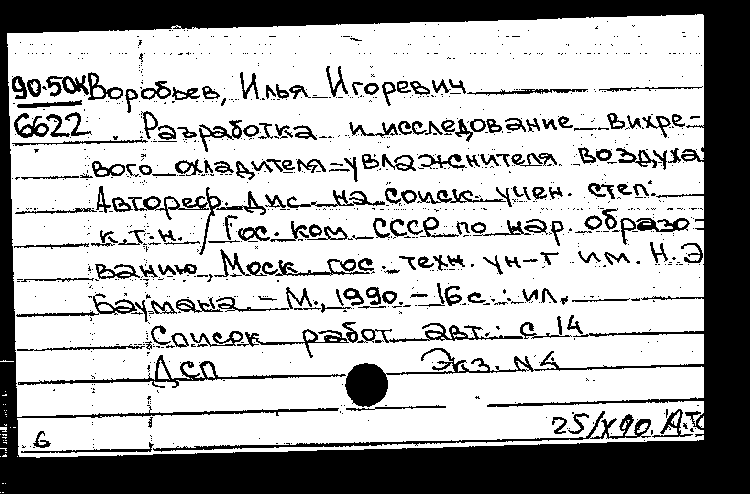 90-50К Воробьев, Илья Игоревич
6622. Разработка и исследование вихре-
вого охладителя-увлажнителя воздуха:
Автореф. дис. на соиск. учен. степ.
к.т.н. / Гос. ком. СССР по нар. образо-
ванию, Моск. гос. техн. ун-т им. Н.Э
Баумана. - М., 1990. - 16 с. : ил.
Список работ авт.: с. 14
ДСП Экз. N4
25/X90.
6